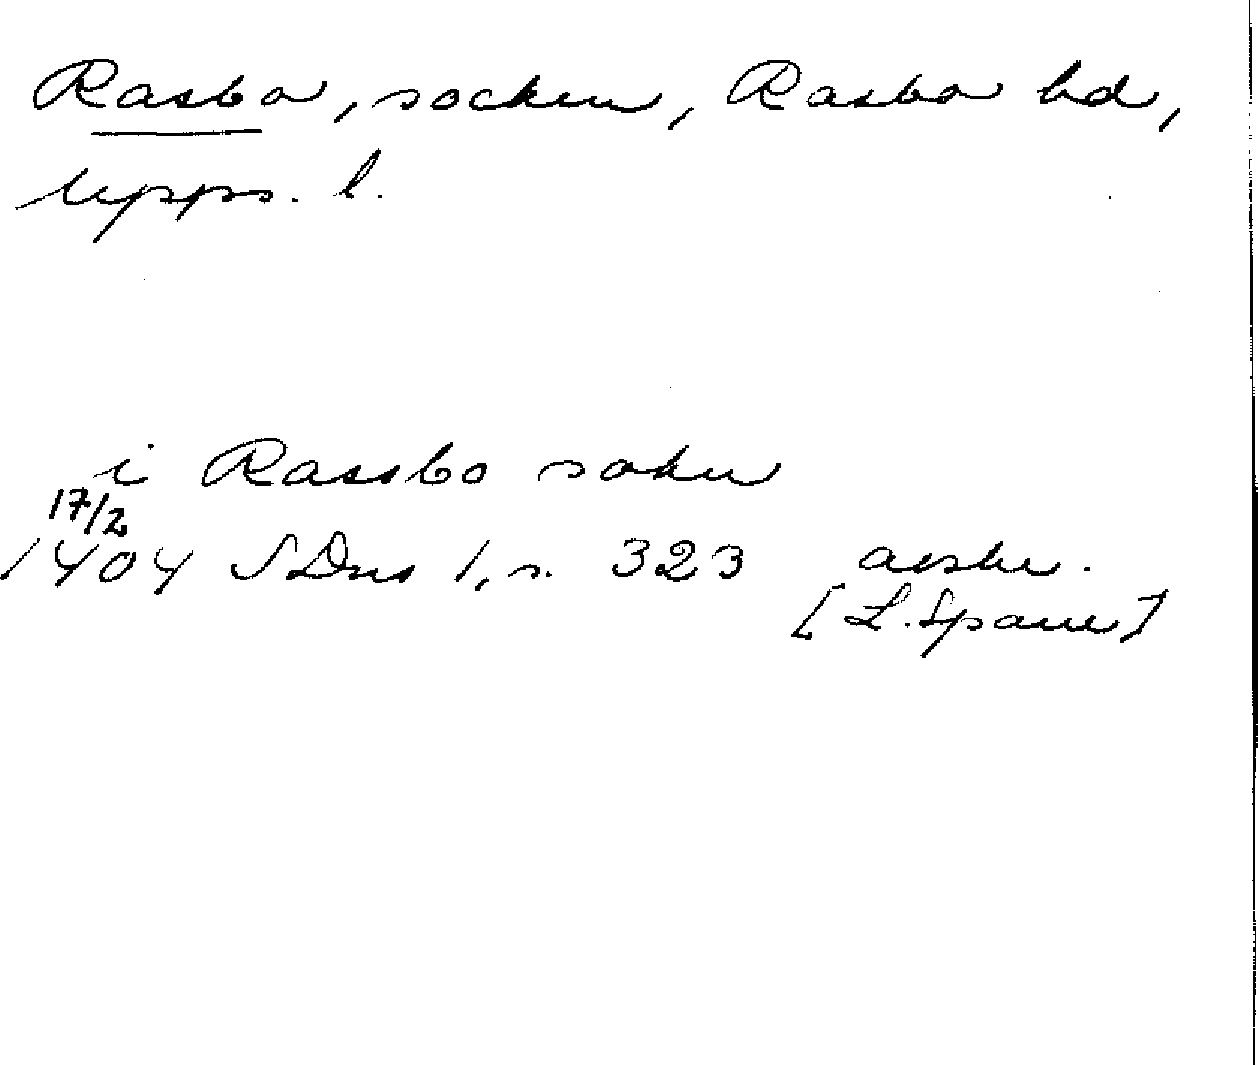 Rasbo, socken, Rasbo hd,
Upps. l.
i Rassbo sokn
17/2
1404 SDns 1, s. 323 avskr.
[L. Spane]